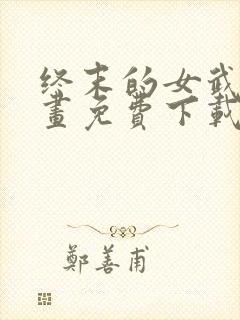 终末的女武
畫免費下載
鄭善甫